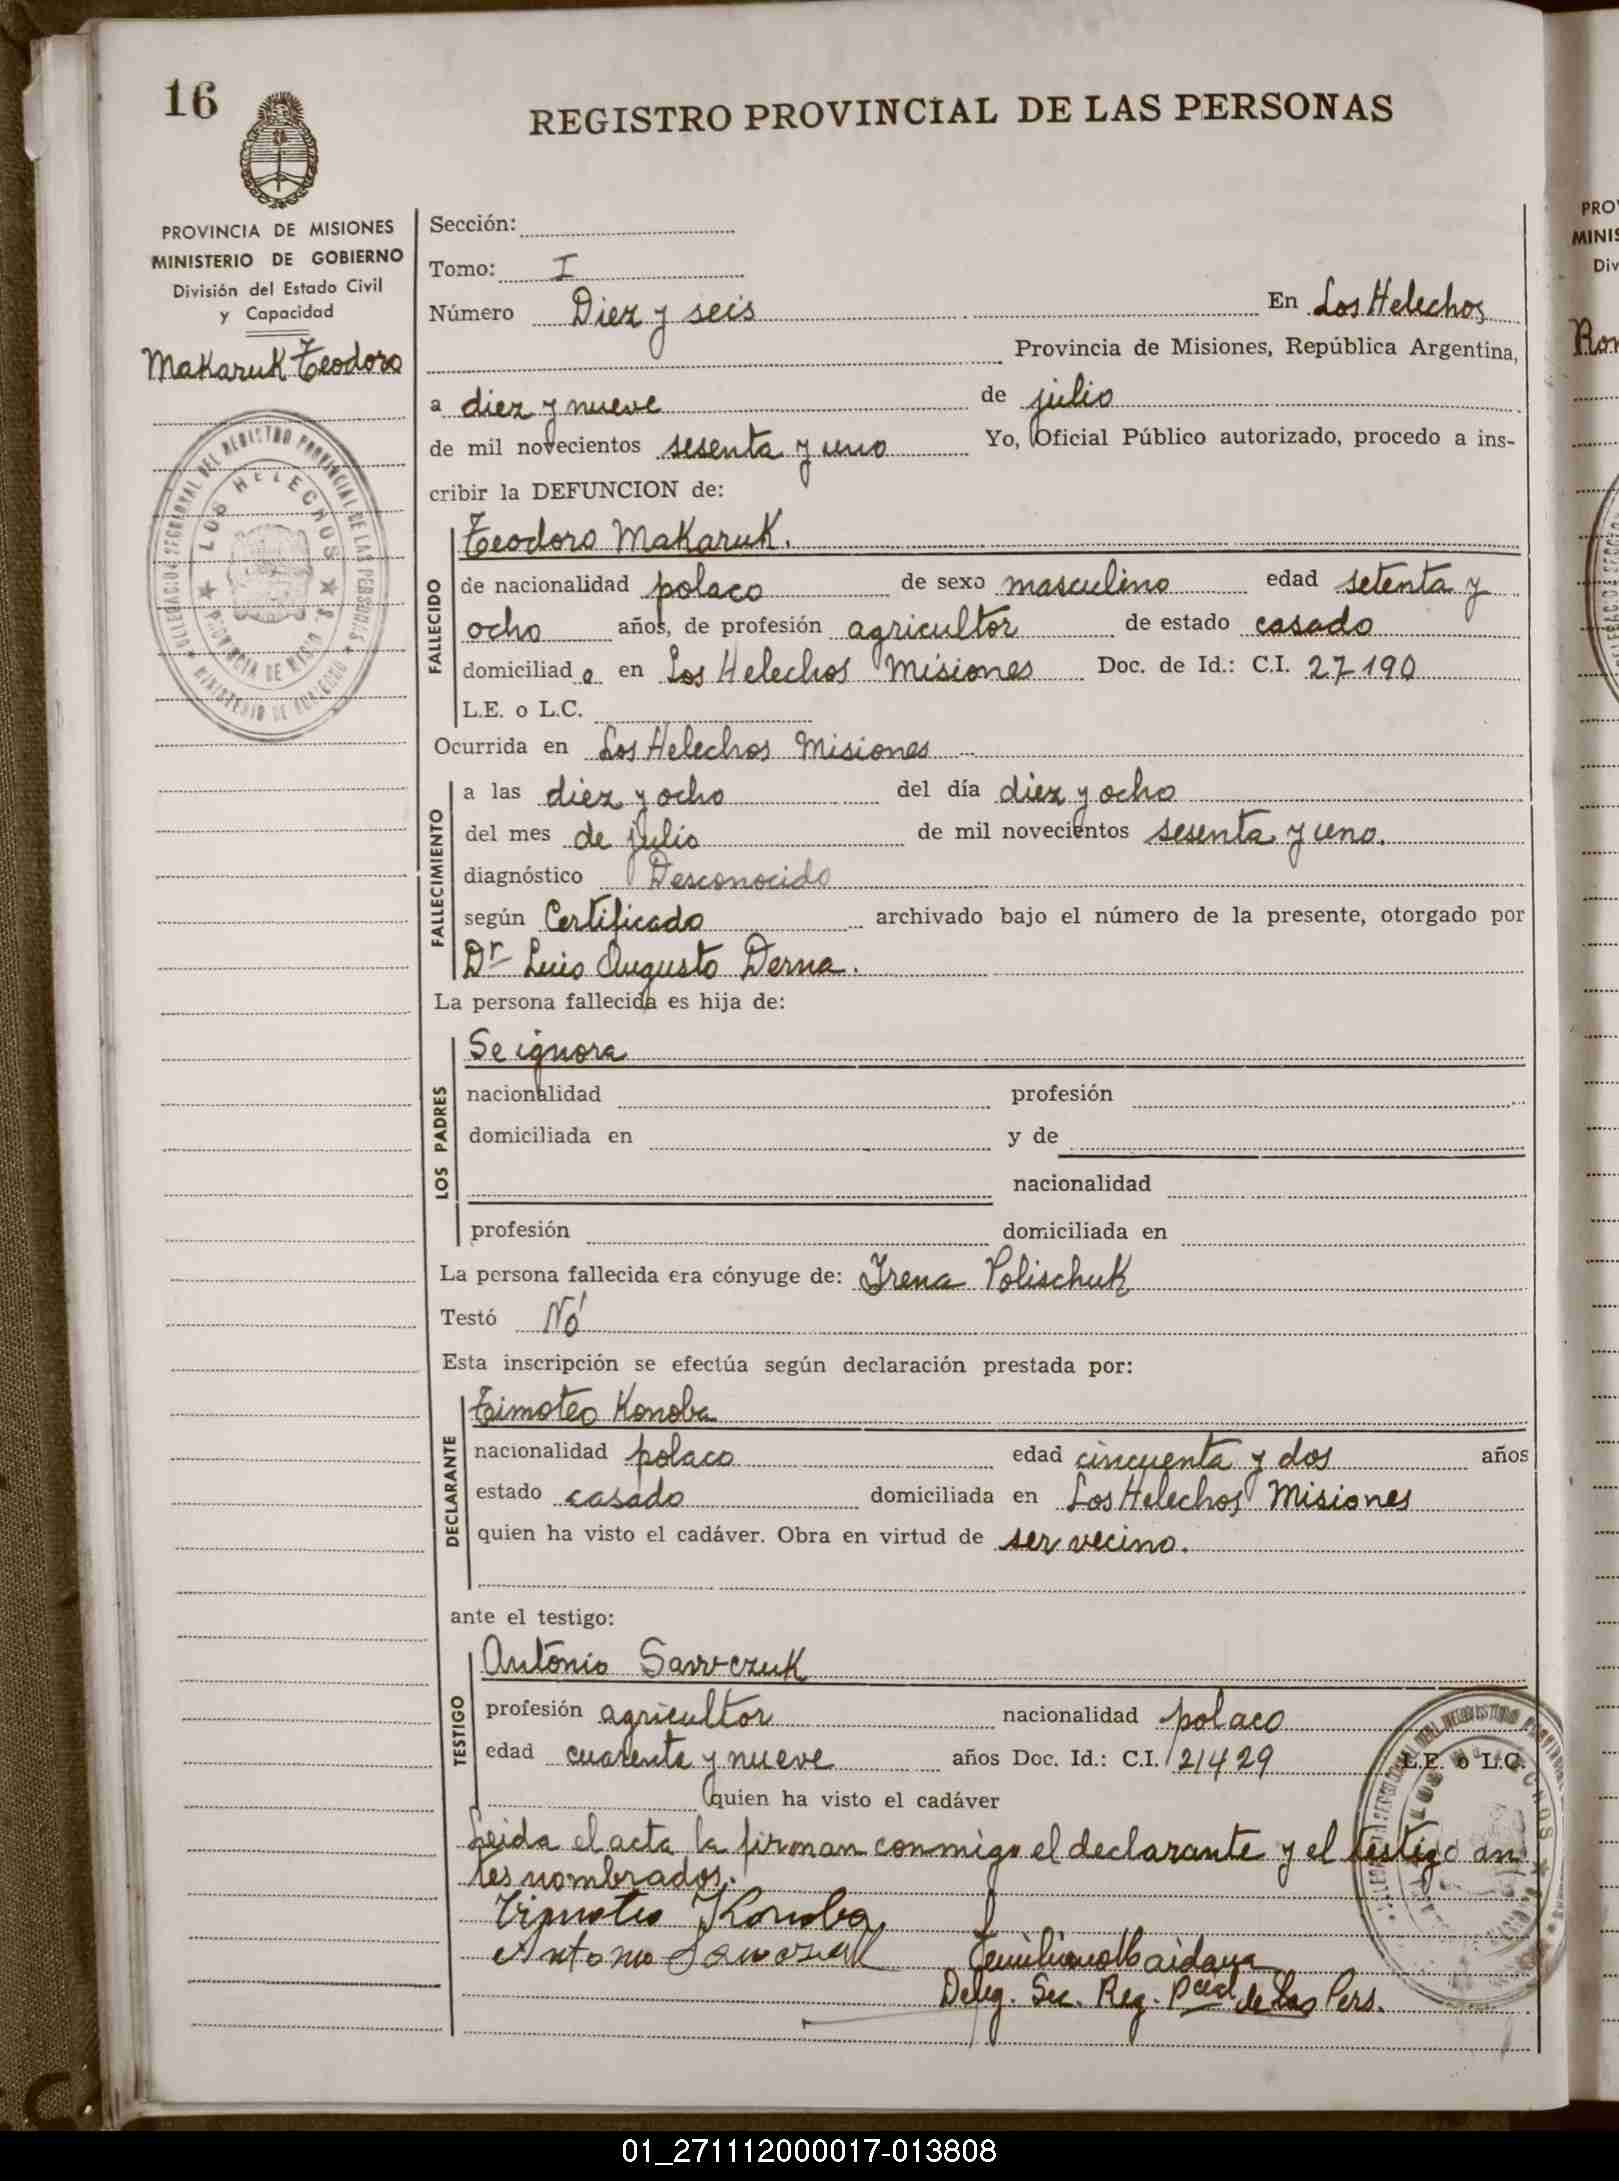 16
REGISTRO PROVINCIAL DE LAS PERSONAS
PROVINCIA DE MISIONES
MINISTERIO DE GOBIERNO
División del Estado Civil
y Capacidad
Makaruk Teodoro
LOS HELECHOS
Sección:
Tomo: I
Número Diez y seis En Los Helechos
Provincia de Misiones, República Argentina,
a diez y nueve de julio
de mil novecientos sesenta y uno Yo, Oficial Público autorizado, procedo a ins-
cribir la DEFUNCION de:
FALLECIDO
Teodoro Makaruk.
de nacionalidad polaco de sexo masculino edad setenta y
ocho años, de profesión agricultor de estado casado
domiciliad o en Los Helechos Misiones Doc. de Id.: C.I. 27190
L.E. o L.C.
Ocurrida en Los Helechos Misiones
FALLECIMIENTO
a las diez y ocho del día diez y ocho
del mes de julio de mil novecientos sesenta y uno.
diagnóstico Desconocido
según Certificado archivado bajo el número de la presente, otorgado por
Dr Luis Augusto Derna.
La persona fallecida es hija de:
LOS PADRES
Se ignora
nacionalidad profesión
domiciliada en y de
nacionalidad
profesión domiciliada en
La persona fallecida era cónyuge de: Irena Polischuk
Testó Nó
Esta inscripción se efectúa según declaración prestada por:
DECLARANTE
Timoteo Konoba
nacionalidad polaco edad cincuenta y dos años
estado casado domiciliada en Los Helechos Misiones
quien ha visto el cadáver. Obra en virtud de ser vecino.
ante el testigo:
TESTIGO
Antonio Sawczuk
profesión agricultor nacionalidad polaco
edad cuarenta y nueve años Doc. Id.: C.I. 21429 L.E. o L.C.
quien ha visto el cadáver
Leida el acta la firman conmigo el declarante y el testigo an
tes nombrados.
Timoteo Konoba
Antonio Sawczuk
Deleg. Sec. Reg. Pcial de Las Pers.
PRO
MINIS
Div
01_271112000017-013808